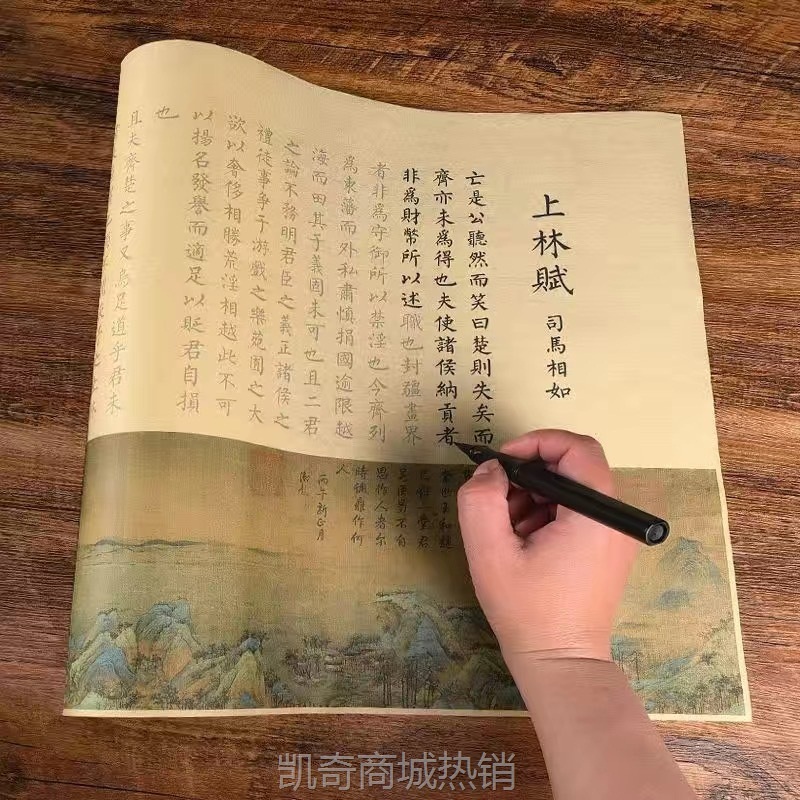 上林賦
司馬相如
亡是公聽然而笑曰楚則失矣而
齊亦未爲得也夫使諸侯納貢者
非爲財幣所以述職也封疆畫界
者非爲守御所以禁淫也今齊列
爲東藩而外私肅慎捐國逾限越
海而田其于義固未可也且二君
之論不務明君臣之義正諸侯之
禮徒事爭于游戲之樂苑囿之大
欲以奢侈相勝荒淫相越此不可
以揚名發譽而適足以貶君自損
也
且夫齊楚之事又烏足道乎君未
丙午新正月
凯奇商城热销